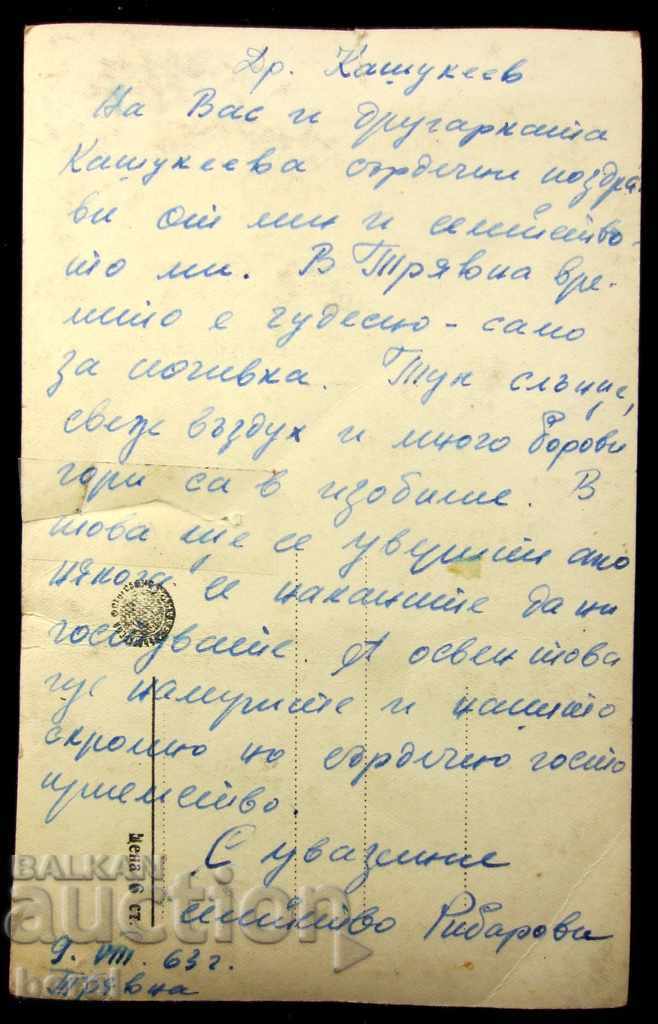 Др. Кашукеев
На Вас и другарката
Кашукеева сърдечни поздра-
ви от мен и семейство-
то ми. В Трявна вре-
мето е чудесно - само
за почивка. Тук слънце,
свеж въздух и много борови
гори са в изобилие. В
това ще се уверите ако
някога се наканите да ни
гостувате. А освен това
ще намерите и нашето
скромно но сърдечно госто
приемство.
С уважение
семейство Рибарови
9. VIII. 63 г.
Трявна
Цена 6 ст.
BALKAN
auction